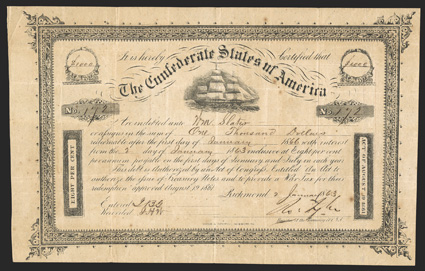 It is hereby Certified that
$1000 $1000
The Confederate States of America
No. No.
indebted unto Wm
or assigns in the sum of One Thousand Dollars
redeemable after the first day of January 1866 with interest
from the day of January 1863 inclusive at Eight per cent
per annum payable on the first days of January and July in each year
This debt is Authorized by an Act of Congress Entitled An Act to
authorize the issue of Treasury Notes and to provide a War Tax for their
redemption approved August 19, 1861
Richmond January 1863
EIGHT PER CENT
ACT OF AUGUST 19, 1861
Entered
Recorded